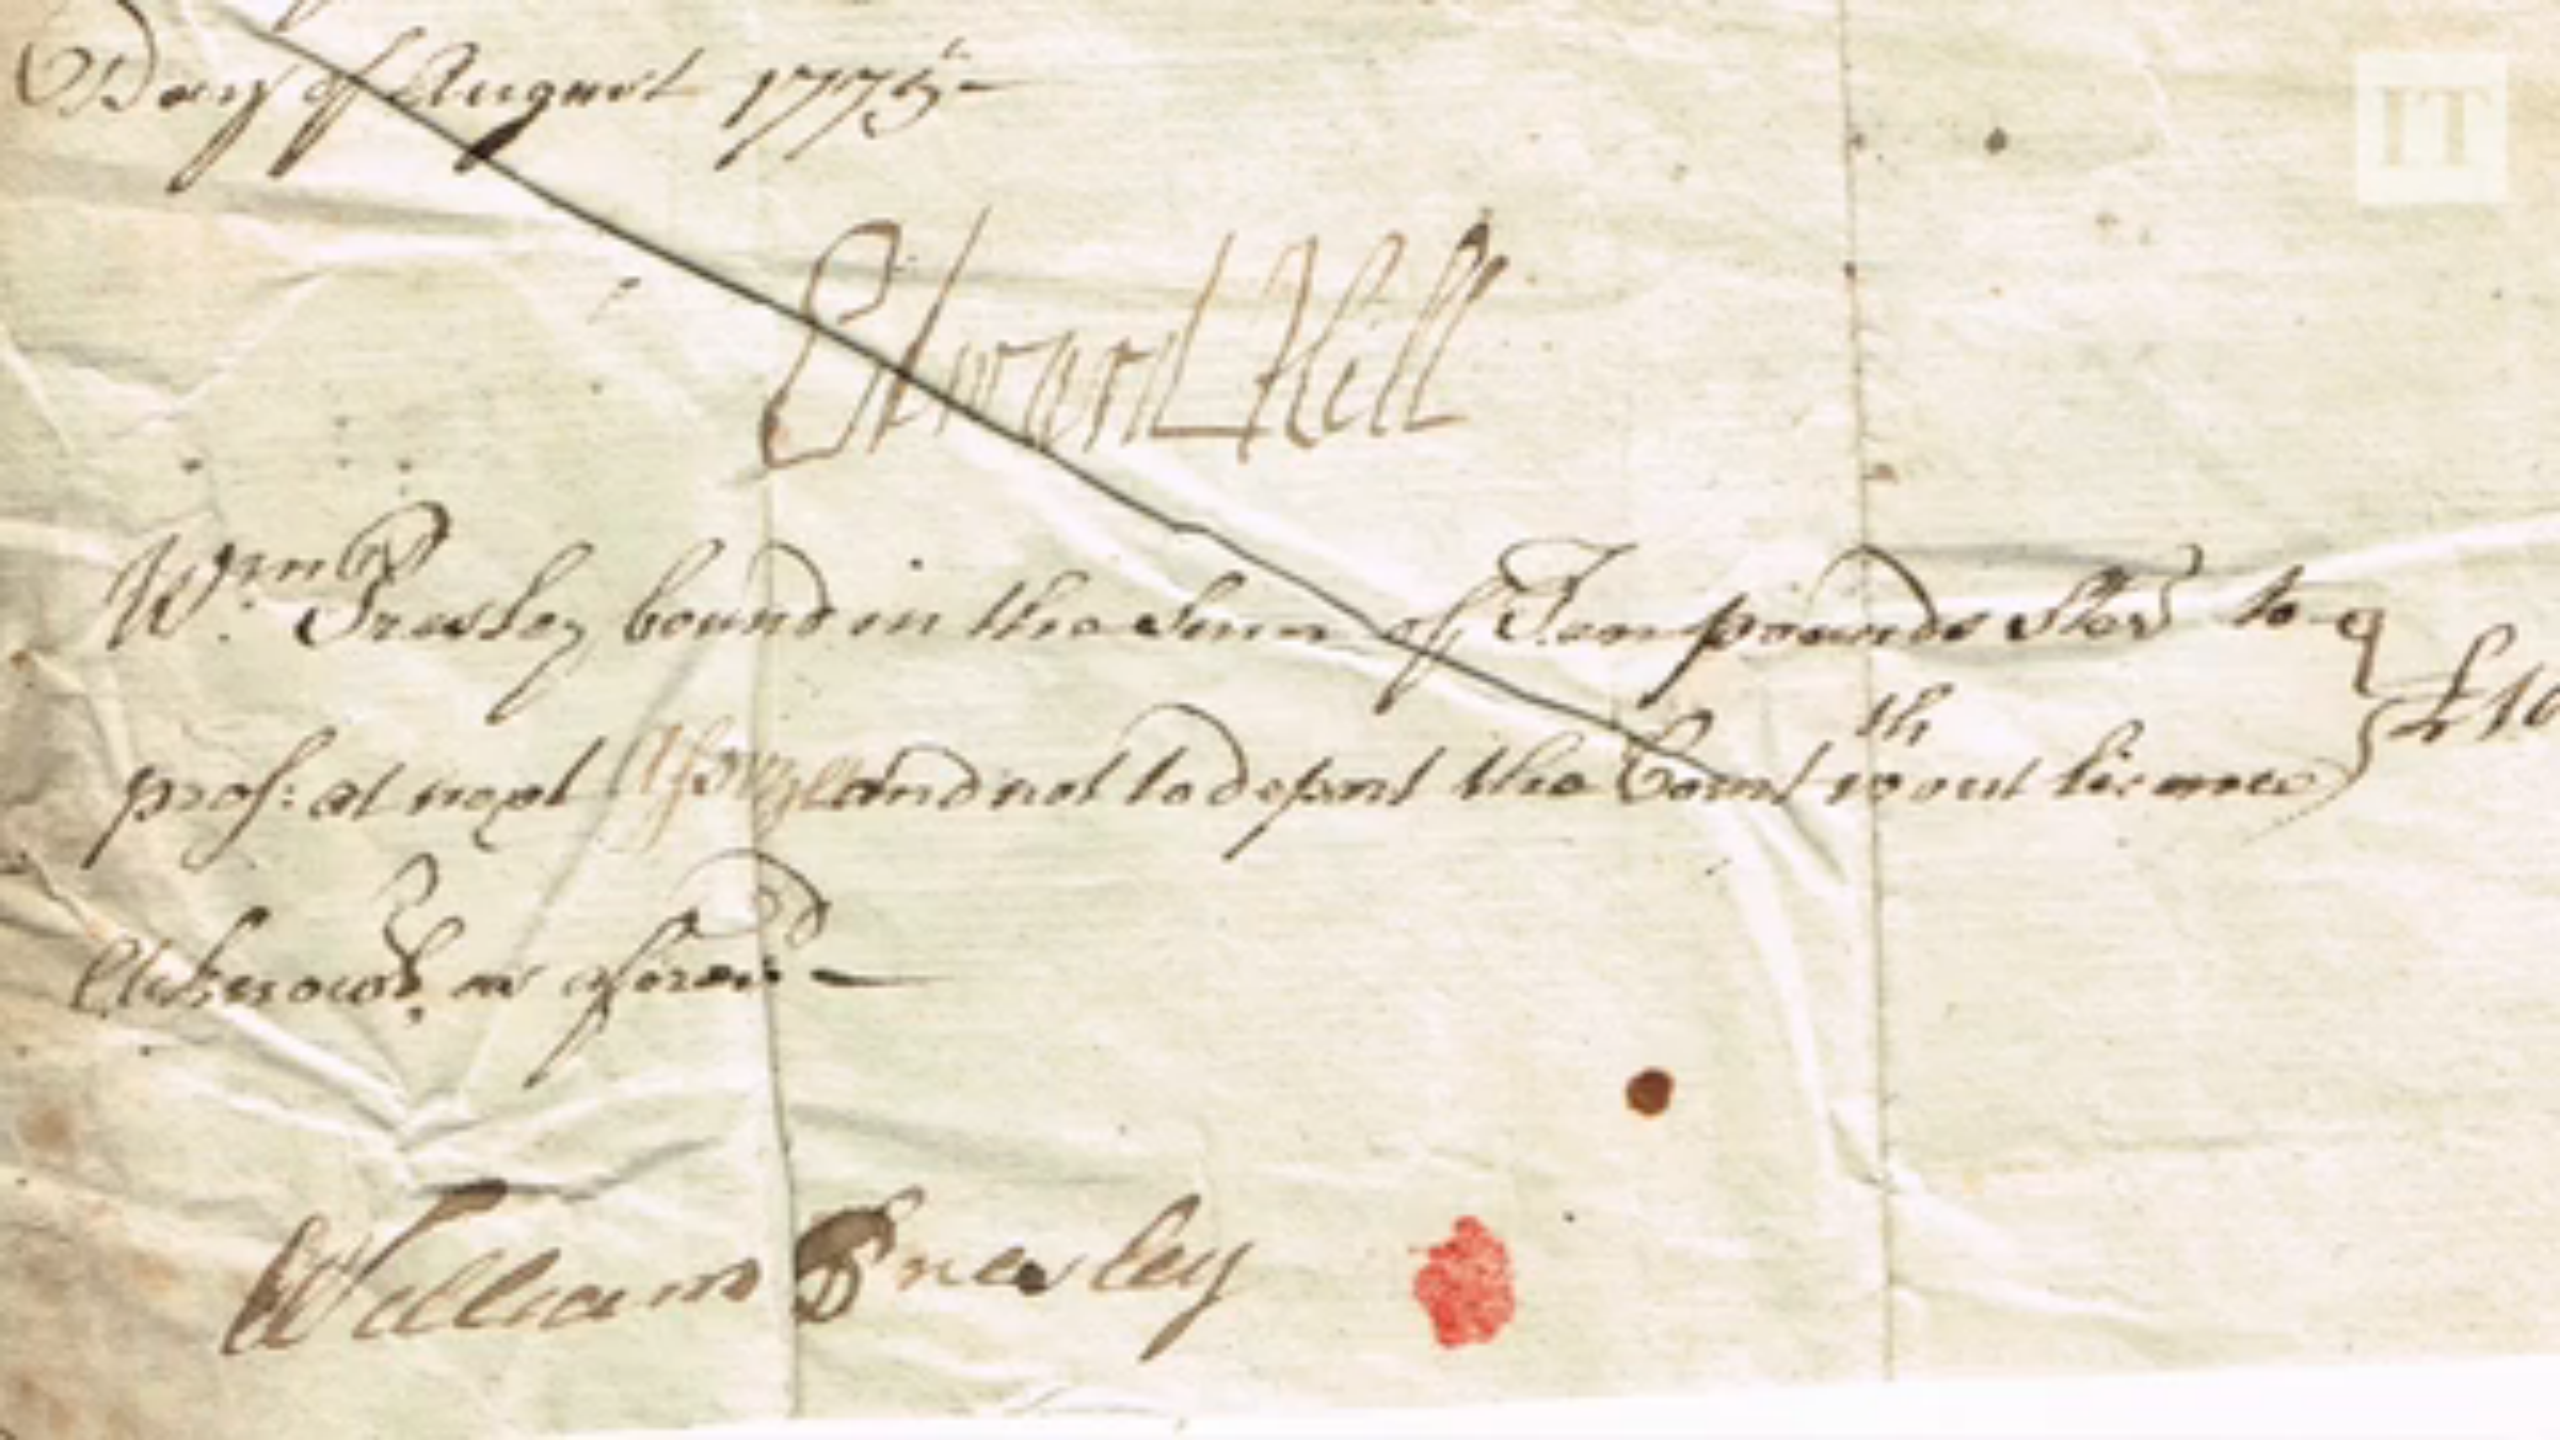 Day of August 1775
IT
Edward Hill
Wm. Presley bound in the Sum of Ten pounds Ster to
£10
pros: at next Assizes and not to depart the Court wthout licence
Acknowd. as afores'd
William Presley